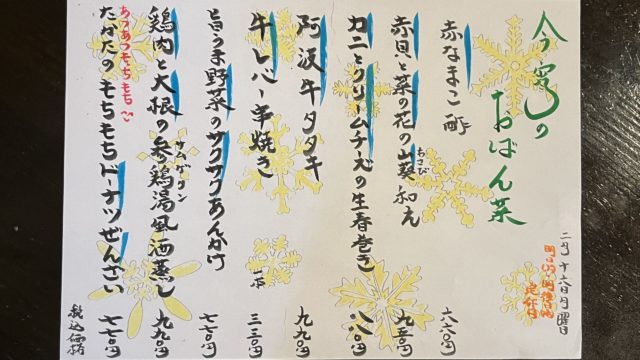 今宵のおばん菜
二月十六日月曜日
赤なまこ酢
六六〇円
赤貝と菜の花の山葵和え
わさび
九五〇円
カニとクリームチーズの生春巻き
八八〇円
阿波牛タタキ
九九〇円
牛レバー串焼き
一本
三三〇円
旨うま野菜のサクサクあんかけ
七七〇円
鶏肉と大根の参鶏湯風酒蒸し
サムゲタン
九九〇円
あつあつもちもち
たかたのもちもちドーナツぜんざい
七七〇円
税込価格